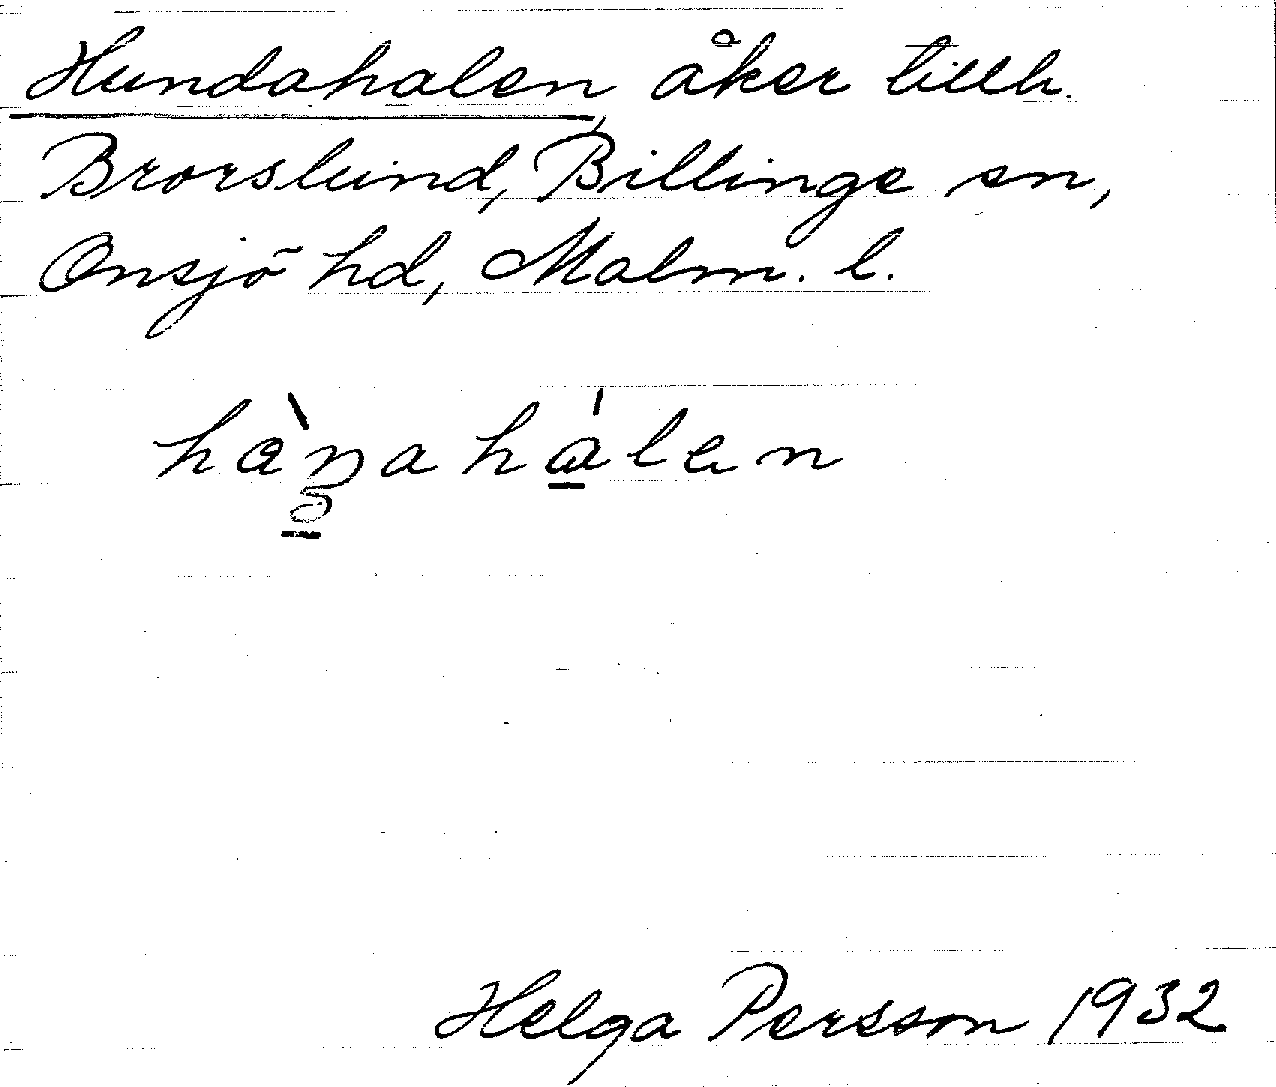 Hundahalen, åker tillh.
Brorslund, Billinge sn,
Onsjö hd, Malm. l.
Helga Persson 1932